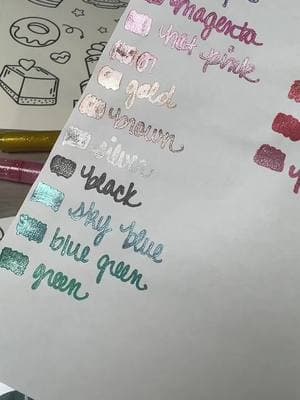 magenta
hot pink
gold
brown
silver
black
sky blue
blue green
green